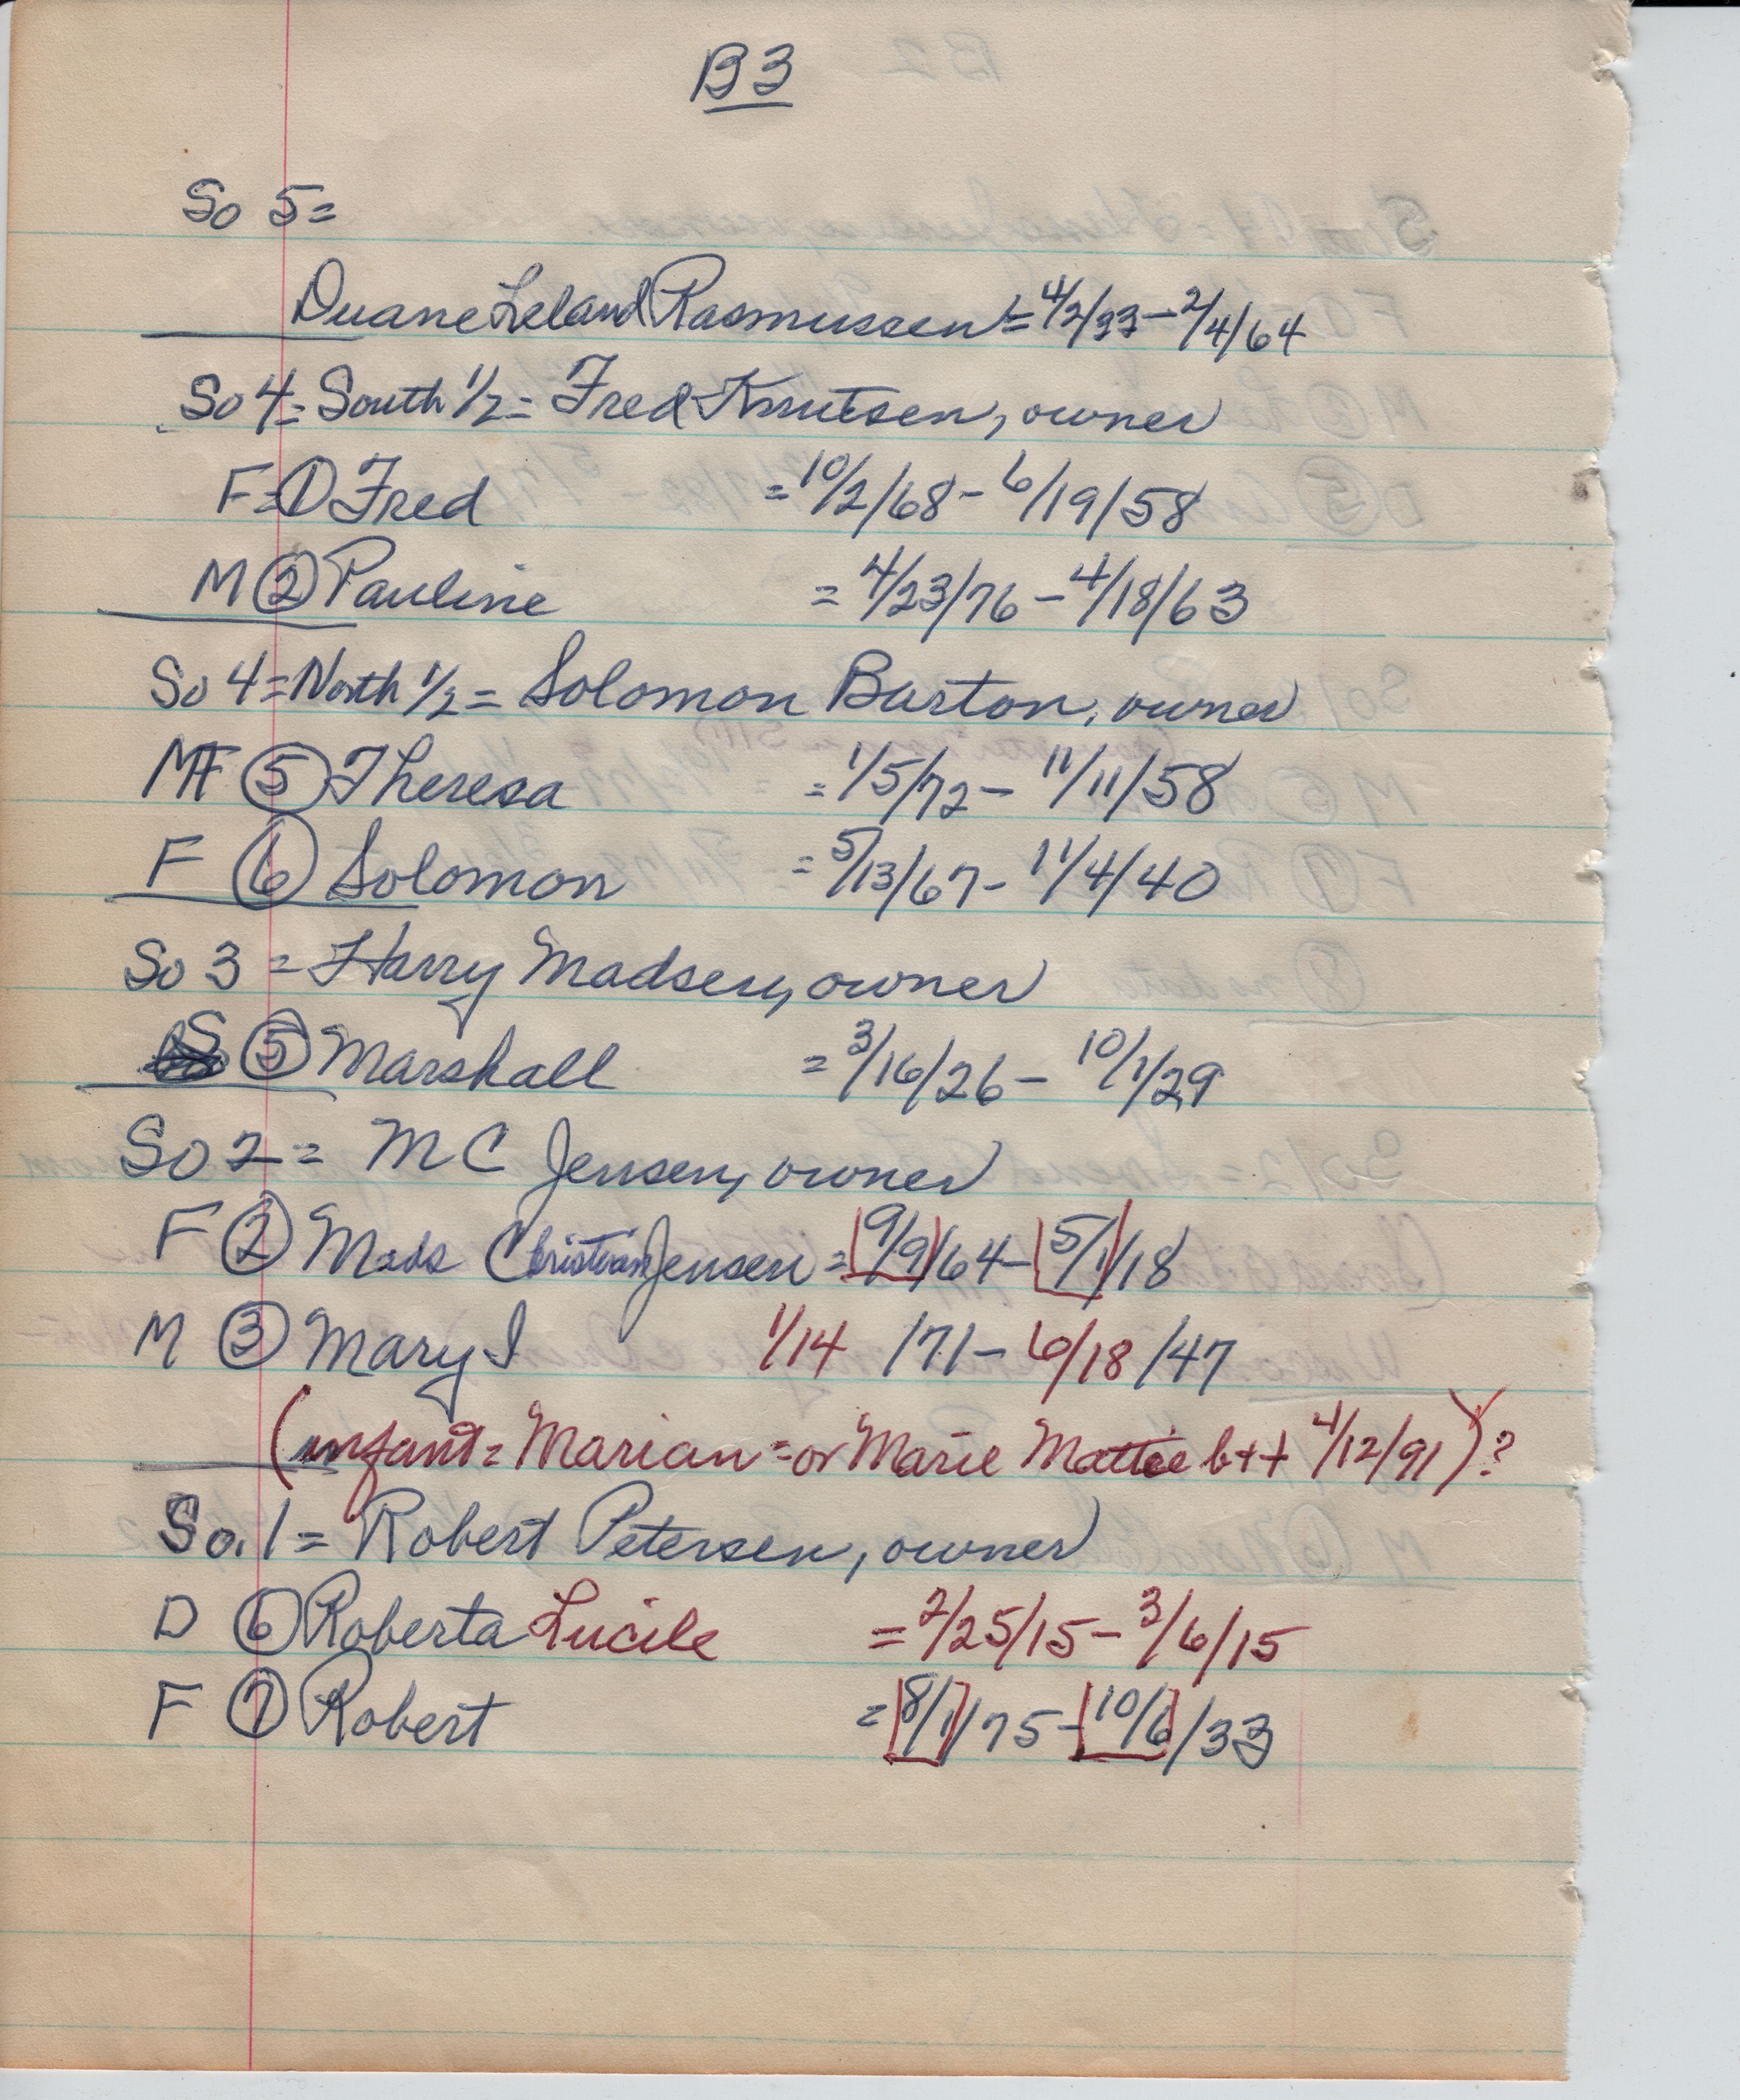 B3
So 5=
Duane Leland Rasmussen = 4/2/33 - 2/4/64
So 4 = South 1/2 = Fred Knutsen, owner
F = ① Fred = 10/2/68 - 6/19/58
M ② Pauline = 4/23/76 - 4/18/63
So 4 = North 1/2 = Solomon Barton, owner
M ⑤ Theresa = 1/5/72 - 11/11/58
F ⑥ Solomon = 5/13/67 - 11/4/40
So 3 = Harry Madsen, owner
S ⑤ Marshall = 3/16/26 - 10/1/29
So 2 = M C Jensen, owner
F ② Mads Christian Jensen = [9/9]/64 - [5/1]/18
M ③ Mary I 1/14 /71 - 6/18 /47
(infant = Marian = or Marie Mattie b + + 4/12/91)?
So. 1 = Robert Petersen, owner
D ⑥ Roberta Lucile = 2/25/15 - 3/6/15
F ⑦ Robert = [8/1]/75 - [10/6]/33